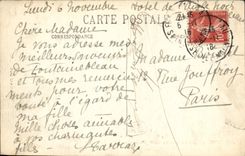 Lundi 6 Novembre
Hotel de
CARTE POSTALE
CORRESPONDANCE
Chère Madame
Je vous adresse mes
meilleurs souvenirs
de Fontainebleau
et vous remercie
votre bonté
à l'égard de
ma fille
Mille choses aimables
à vos charmantes
filles
Madame
Rue Jouffroy
Paris